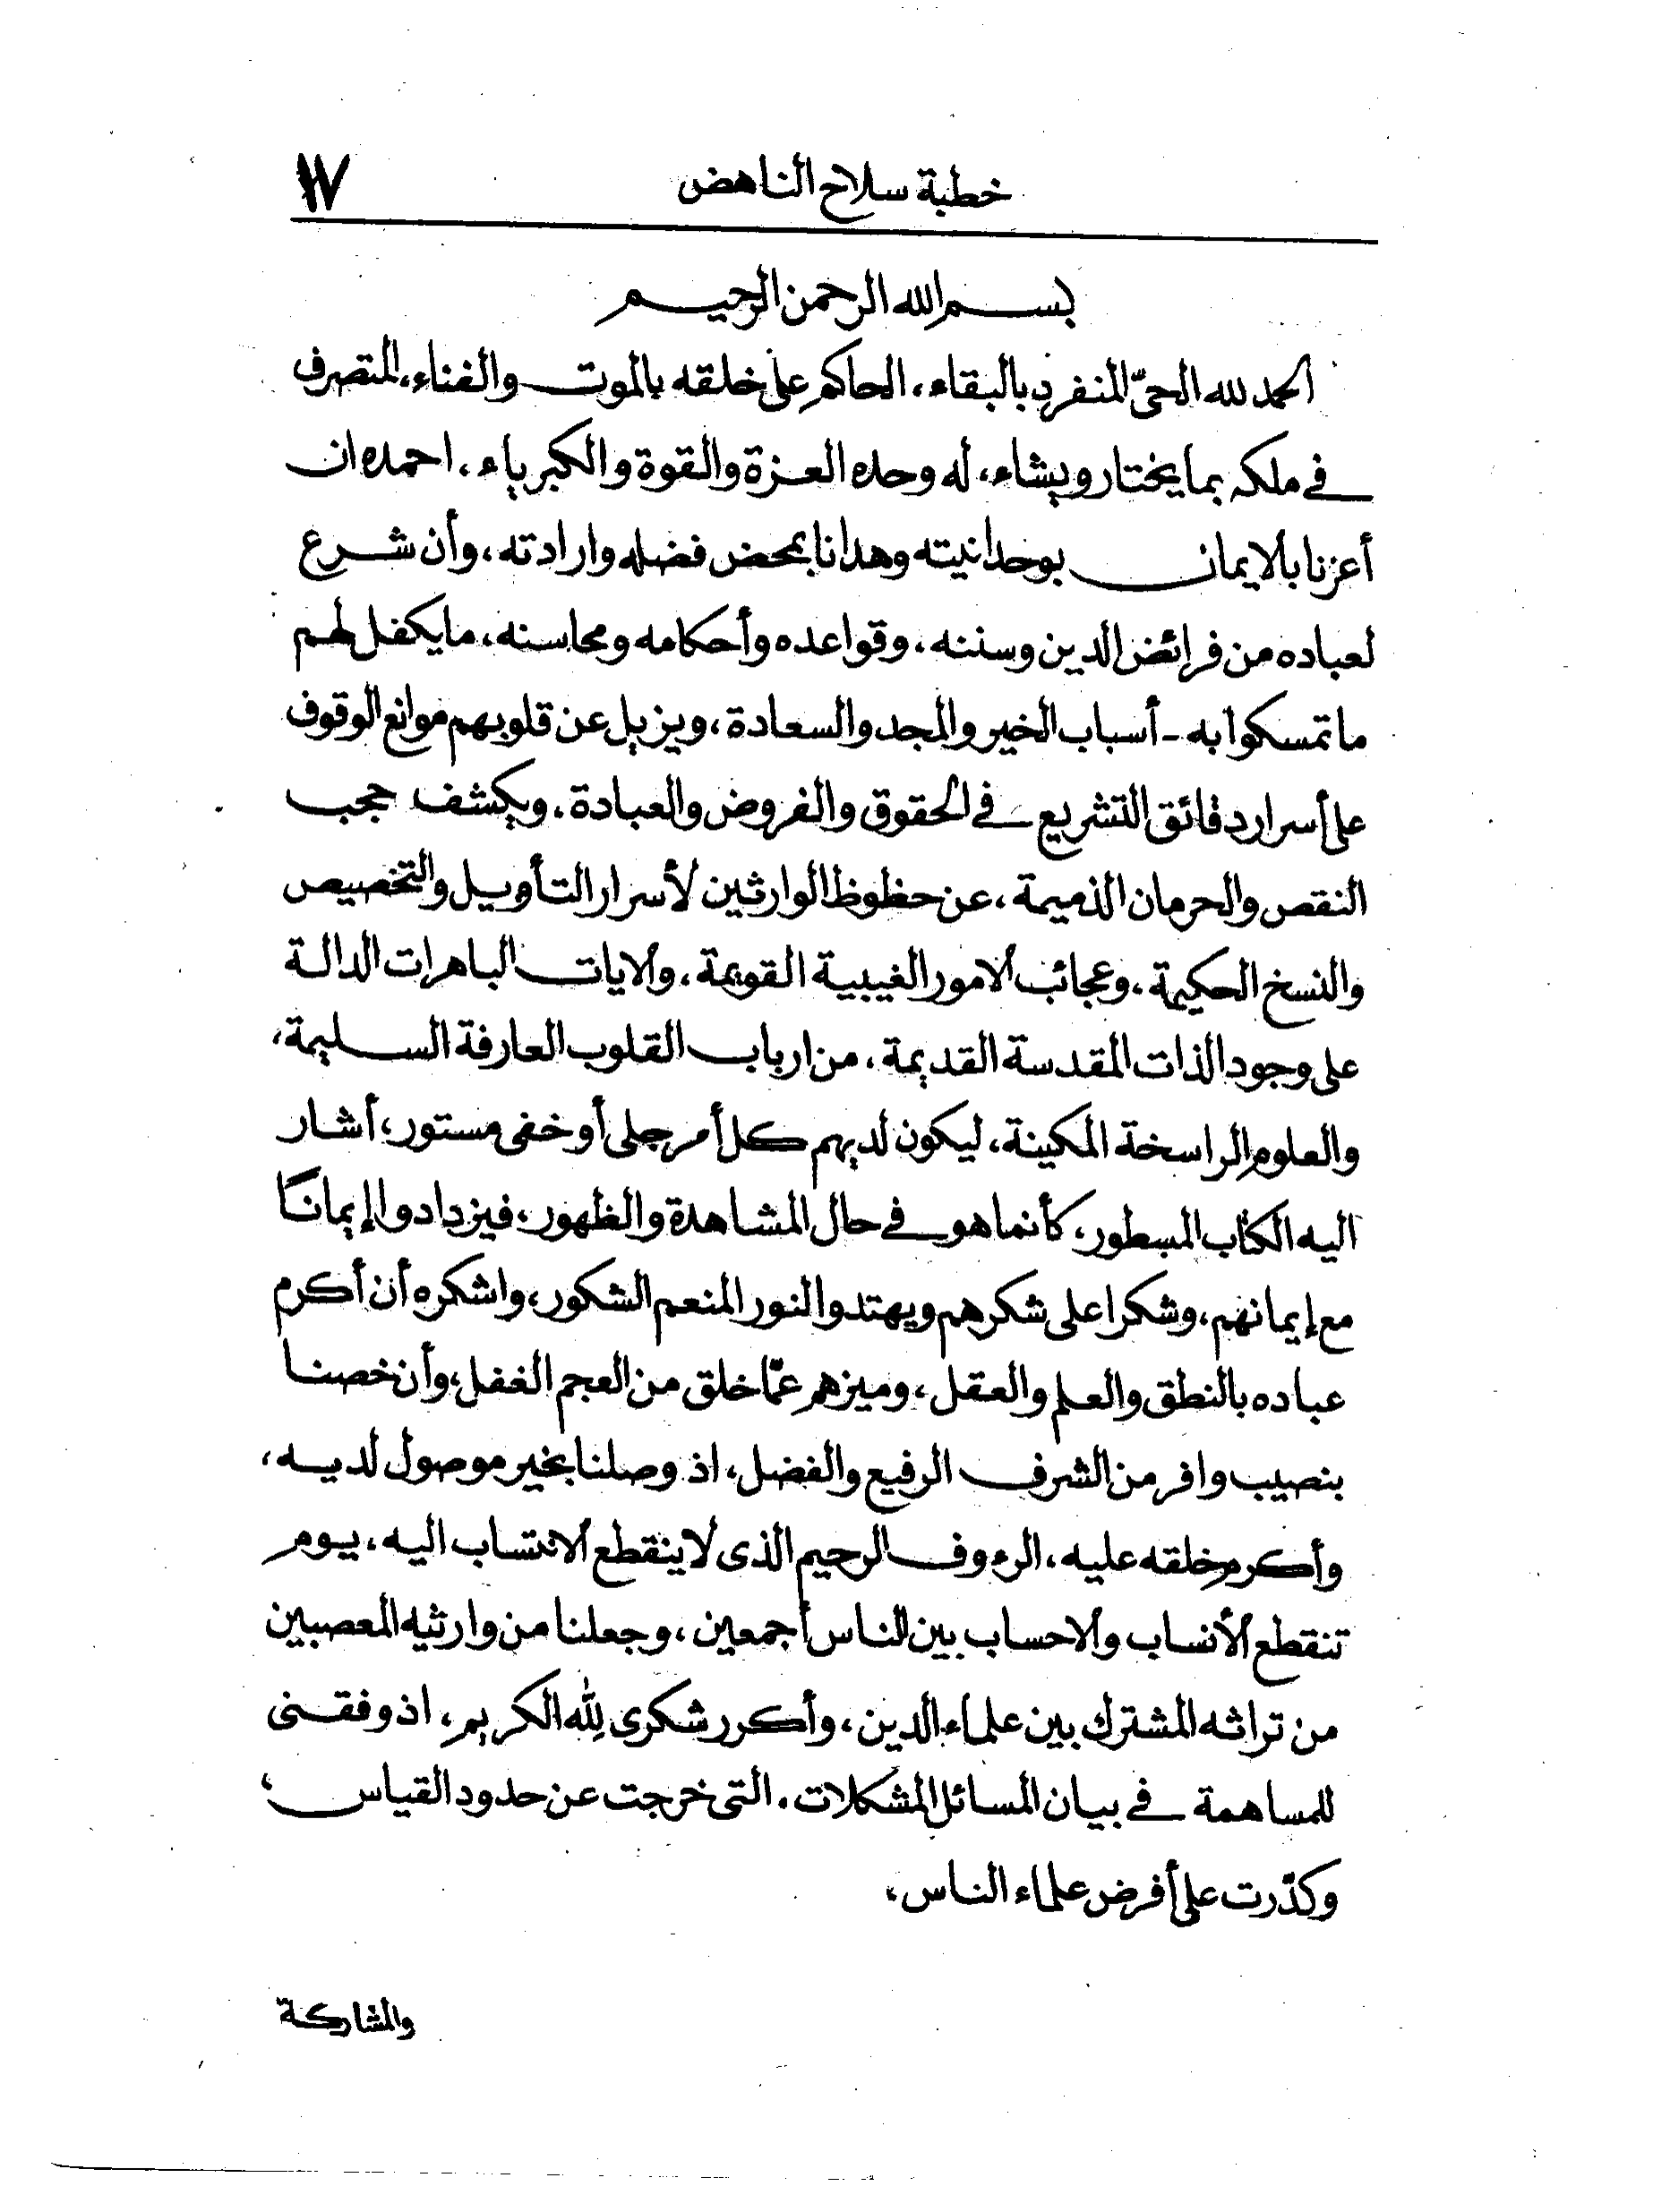 خطبة سلاح الناهض ١٧
بسم الله الرحمن الرحيم
الحمد لله الحىّ المنفرد بالبقاء، الحاكم على خلقه بالموت والفناء، المتصرف
فى ملكه بما يختار ويشاء، له وحده العزة والقوة والكبرياء، احمده ان
أعزنا بالايمان بوحدانيته وهدانا بمحض فضله وارادته، وأن شرع
لعباده من فرائض الدين وسننه، وقواعده وأحكامه ومحاسنه، ما يكفل لهم
ما تمسكوا به - أسباب الخير والمجد والسعادة، ويزيل عن قلوبهم موانع الوقوف
على أسرار دقائق التشريع فى الحقوق والفروض والعبادة. ويكشف حجب
النقص والحرمان الذميمة، عن حظوظ الوارثين لأسرار التأويل والتخصيص
والنسخ الحكيمة، وعجائب الامور الغيبية القويمة، والايات الباهرات الدالة
على وجود الذات المقدسة القديمة، من ارباب القلوب العارفة السليمة،
والعلوم الراسخة المكينة، ليكون لديهم كل أمر جلى أو خفى مستور، أشار
اليه الكتاب المسطور، كأنما هو فى حال المشاهدة والظهور، فيزدادوا إيمانًا
مع إيمانهم، وشكرا على شكرهم ويهتدوا النور المنعم الشكور، واشكره أن أكرم
عباده بالنطق والعلم والعقل، وميزهم عمّا خلق من العجم الغفل، وأن خصنا
بنصيب وافر من الشرف الرفيع والفضل، اذ وصلنا بخير موصول لديه،
وأكرم خلقه عليه، الرءوف الرحيم الذى لا ينقطع الانتساب اليه، يوم
تنقطع الأنساب والاحساب بين الناس أجمعين، وجعلنا من وارثيه المعصبين
من تراثه المشترك بين علماء الدين، وأكرر شكرى لله الكريم، اذ وفقنى
للمساهمة فى بيان المسائل المشكلات، التى خرجت عن حدود القياس،
وكدّرت على أفرض علماء الناس،
والمشاركة